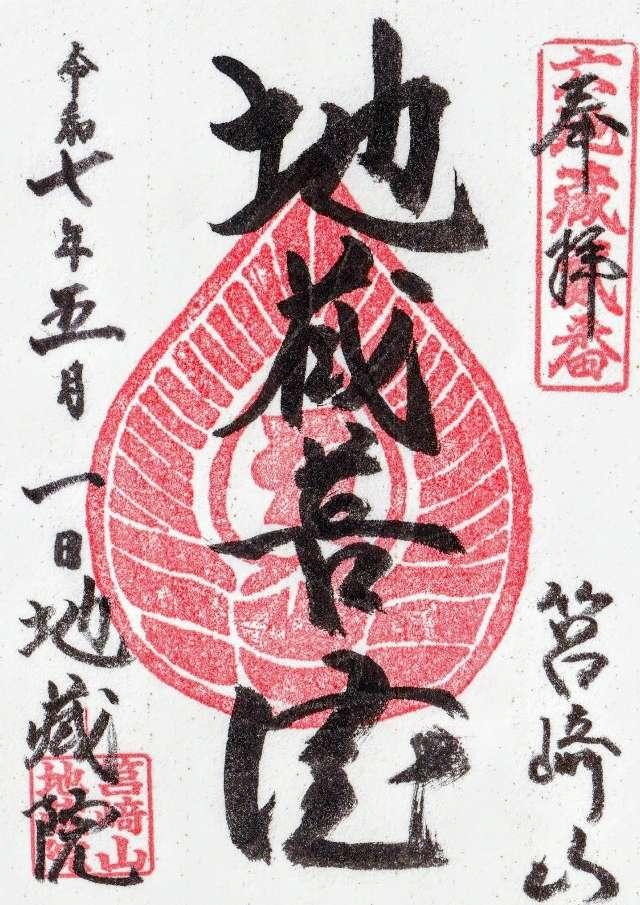 奉拝
筥崎山
地蔵菩薩
令和七年五月一日
地蔵院
筥崎山
地蔵院